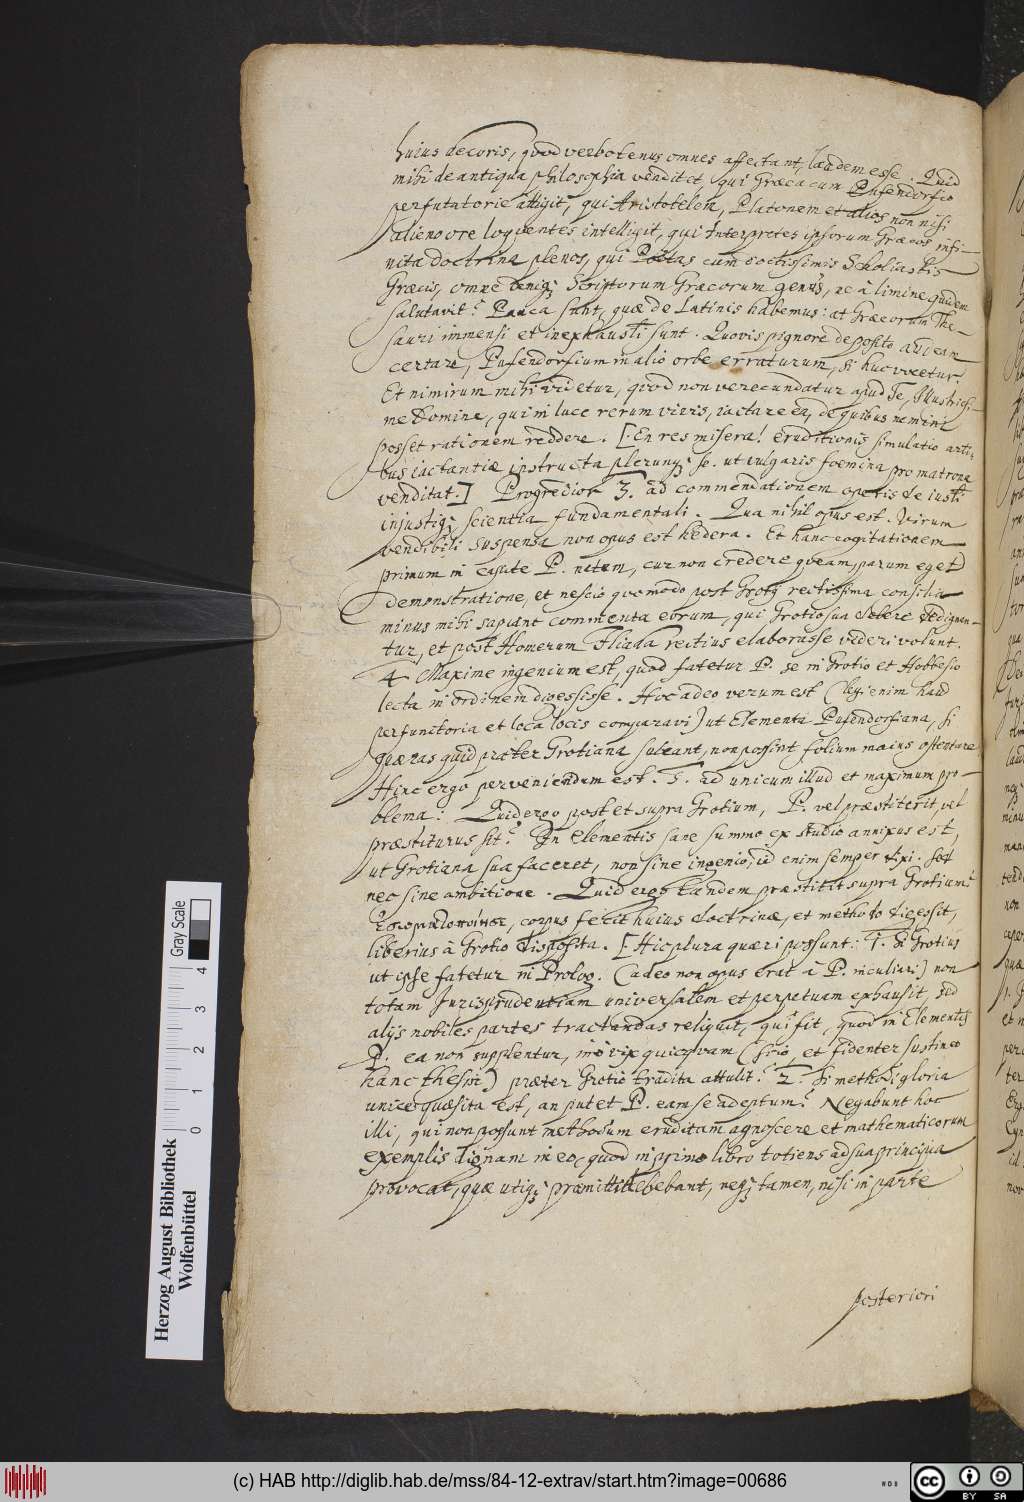 huius decoris, quod verbotenus omnes affectant, laudem esse. Quid
mihi de antiqua philosophia venditet, qui Græca cum Pufendorfio
perfunctorie attigit, qui Aristotelem, Platonem et alios non nisi
alieno ore loquentes intelligit, qui Interpretes ipsorum Græcos infi-
nita doctrina plenos, qui Poëtas cum doctissimis Scholiastis
Græcis, omne Scriptorum Græcorum genus, ac à limine quidem
salutavit? Pauca sunt, quæ de Latinis habemus: at Græcorum The-
sauri immensi et inexhausti sunt. Quovis pignore deposito audeam
certare, Pufendorfium in alio orbe erraturum, si huc vocetur.
Et nimirum mihi videtur, quod non verecundatur apud Te, Illustrissi-
me Domine, qui in luce rerum vivis, iactare ea, de quibus nemini
posset rationem reddere. [En res misera! eruditionis simulatio arti-
bus iactantiæ instructa plerunq; se ut vulgaris foemina pro matrona
venditat.] Progredior 3. ad commendationem operis de iusti
injustiq; scientia fundamentali. Qua nihil opus est. Virum
vendibili suspensa non opus est hedera. Et hanc cogitationem
primum in capite P. natam, cur non credere queam, parum eget
demonstratione, et nescio quomodo post Grotij rectissima consilia
minus mihi sapiant commenta eorum, qui Grotio sua debere dedignan-
tur, et post Homerum Iliada rectius elaborasse videri volunt.
4 Maxime ingenuum est, quod fatetur P. se in Grotio et Hobbesio
lecta in ordinem digessisse. Hoc adeo verum est (legi enim haud
perfunctoria et loca locis comparavi) ut Elementa Pufendorfiana, si
quæras quid præter Grotiana habeant, non possint folium maius ostentare
Hinc ergo perveniendum est. 5. ad unicum illud et maximum pro-
blema: Quid ergo post et supra Grotium, P. vel præstiterit, vel
præstiturus sit? In Elementis sane summo ex studio annixus est,
ut Grotiana sua faceret, non sine ingenio, id enim semper dixi. sed
nec sine ambitione. Quid ergo tandem præstitit supra Grotium?
corpus fecit huius doctrinæ, et methodo digessit,
liberius à Grotio disposita. [Hic plura quæri possunt: 1. Si Grotius
ut ipse fatetur in Prolog. (adeo non opus erat à P. inculcari) non
totam Jurisprudentiam universalem et perpetuam exhausit, sed
alijs nobiles partes tractandas reliquit, qui fit, quod in Elementis
P. ea non supplentur, imò vix quicquam (scio, et fidenter sustineo
hanc thesin) præter Grotio tradita attulit? 2. Si methodi gloria
unice quæsita est, an putet P. eam se adeptum? Negabunt hoc
illi, qui non possunt methodum eruditam agnoscere et mathematicorum
exemplis dignam in eo, quod in primo libro totiens ad sua principia
provocat, quæ utiq; præmitti debebant, neq; tamen, nisi in parte
posteriori
Herzog August Bibliothek
Wolfenbüttel
0 1 2 3 4
Gray Scale
(c) HAB http://diglib.hab.de/mss/84-12-extrav/start.htm?image=00686
cc BY SA